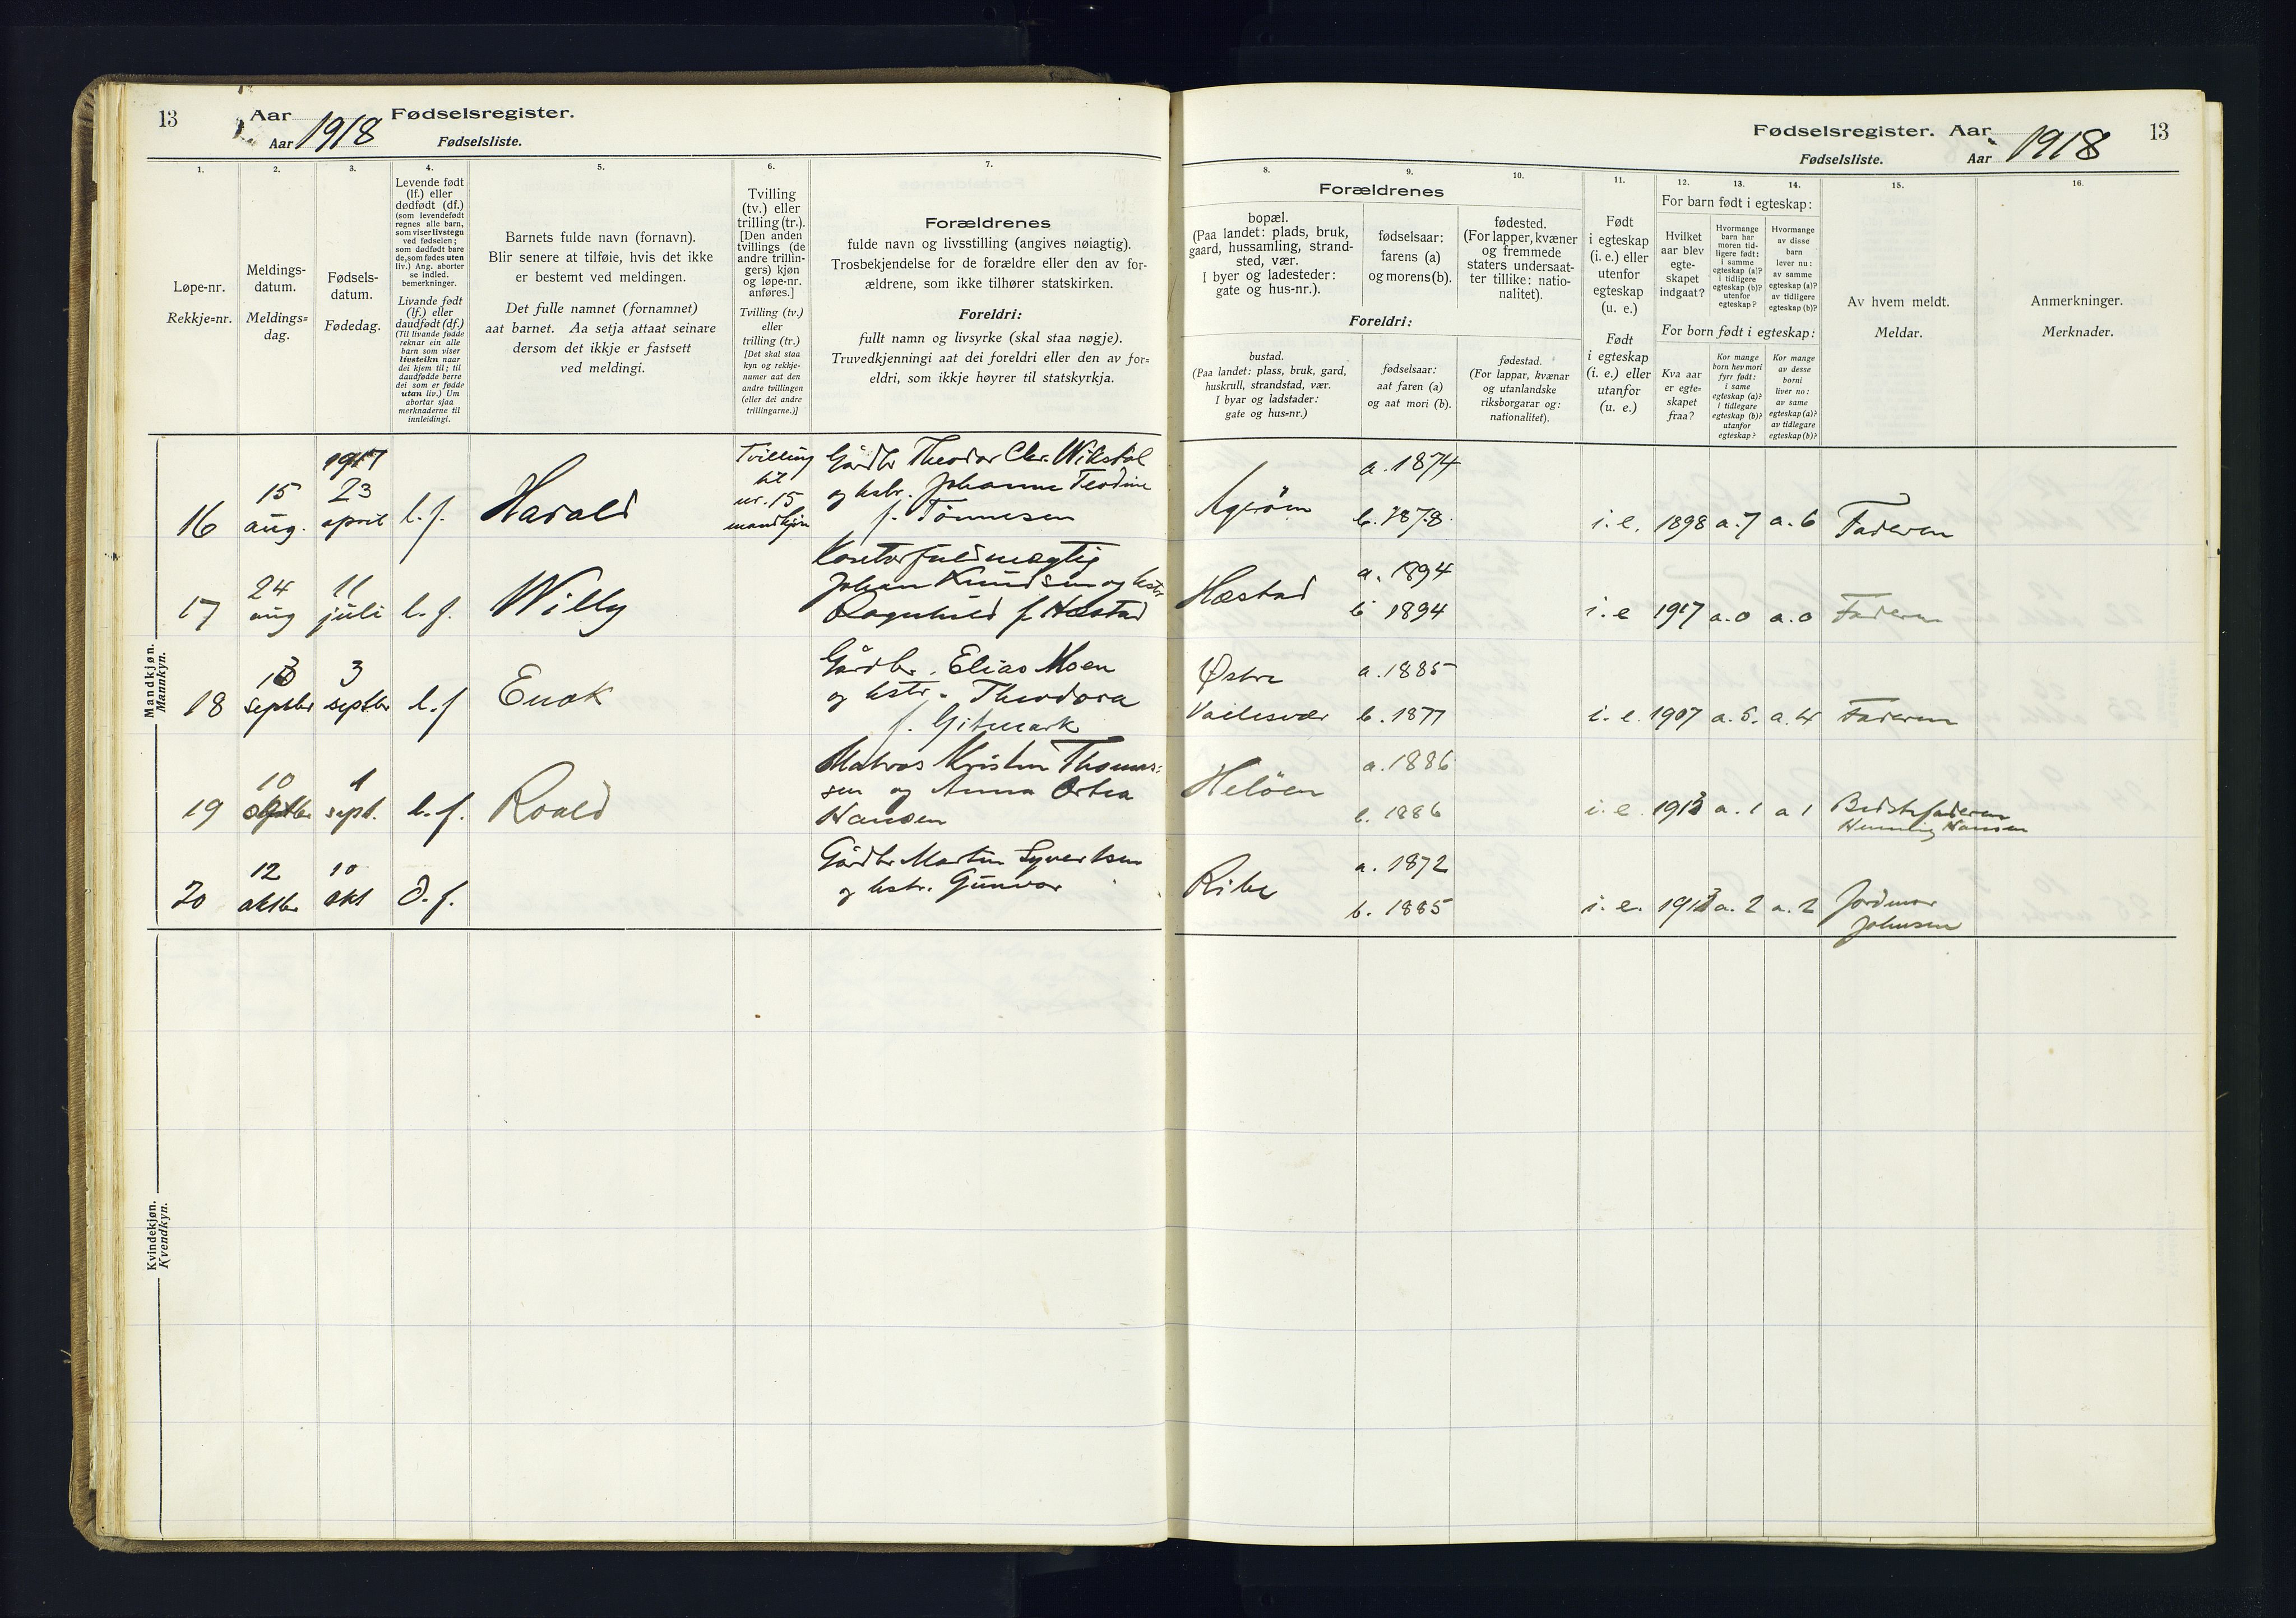 13
Aar
Fødselsregister.
Aar 1918
Fødselsliste.
1.
Løpe-nr.
Rekkje=nr.
2.
Meldings-
datum.
Meldings=
dag.
3.
Fødsels-
datum.
Fødedag.
4.
Levende født
(lf.) eller
dødfødt (df.)
(som levendefødt
regnes alle barn,
som viser livstegn
ved fødselen;
som dødfødt bare
de, som fødes uten
liv.) Ang. aborter
se indled.
bemerkninger.
Livande født
(lf.) eller
daudfødt (df.)
(Til livande fødde
reknar ein alle
barn som viser
livsteikn naar
dei kjem til; til
daudfødde berre
dei som er fødde
utan liv.) Um
abortar sjaa
merknaderne til
innleidingi.
5.
Barnets fulde navn (fornavn).
Blir senere at tilføie, hvis det ikke
er bestemt ved meldingen.
Det fulle namnet (fornamnet)
aat barnet. Aa setja attaat seinare
dersom det ikkje er fastsett
ved meldingi.
6.
Tvilling
(tv.) eller
trilling (tr.).
[Den anden
tvillings (de
andre trillin-
gers) kjøn
og løpe-nr.
anføres.]
Tvilling (tv.)
eller
trilling (tr.)
[Det skal staa
kyn og rekkje-
numer aat den
andre tvillingen
(eller dei andre
trillingarne.)]
7.
Forældrenes
fulde navn og livsstilling (angives nøiagtig).
Trosbekjendelse for de forældre eller den av for-
ældrene, som ikke tilhører statskirken.
Foreldri:
fullt namn og livsyrke (skal staa nøgje).
Truvedkjenningi aat dei foreldri eller den av for=
eldri, som ikkje høyrer til statskyrkja.
Mandkjøn.
Mannkyn.
16
15
aug.
1917
23
april
l. f.
Harald
Tvilling
til
nr. 15
mandkjøn
Gårdbr Theodor Chr. Wikstøl
og hstr. Johanne Teodine
f. Tönnesen
17
24
aug
11
juli
l. f.
Willy
Kontorfuldmægtig
Johan Knudsen og hstr
Ragnhild f. Hæstad
18
septbr
3
septbr
l. f
Enok
Gårdbr. Elias Moen
og hstr. Theodora
f. Gitmark
19
10
septbr
1
sept.
l. f.
Roald
Matros Kristen Thomas=
sen og Anna Ortea
Hansen
20
12
oktbr
10
okt
d. f.
Gårdbr Martin Syvertsen
og hstr. Gunvor
Kvindekjøn.
Kvendkyn.
Fødselsregister. Aar
13
Fødselsliste.
Aar 1918
8.
Forældrenes
bopæl.
(Paa landet: plads, bruk,
gaard, hussamling, strand-
sted, vær.
I byer og ladesteder:
gate og hus-nr.).
9.
fødselsaar:
farens (a)
og morens (b).
10.
fødested.
(For lapper, kvæner
og fremmede
staters undersaat-
ter tillike: natio-
nalitet).
Foreldri:
bustad.
(Paa landet: plass, bruk, gard,
huskrull, strandstad, vær.
I byar og ladstader:
gate og hus=nr.)
fødselsaar:
aat faren (a)
og aat mori (b).
fødestad.
(For lappar, kvænar
og utanlandske
riksborgarar og:
nationalitet).
11.
Født
i egteskap
(i. e.) eller
utenfor
egteskap
(u. e.)
Født
i egteskap
(i. e.) eller
utanfor
(u. e.)
12.
13.
14.
For barn født i egteskap:
Hvilket
aar blev
egte-
skapet
indgaat?
Hvormange
barn har
moren tid-
ligere født:
i samme
egteskap (a)?
i tidligere
egteskap (b)?
utenfor
egteskap?
Hvormange
av disse
barn
lever nu:
av samme
egteskap (a)?
av tidligere
egteskap (b)?
For born født i egteskap:
Kva aar
er egte=
skapet
fraa?
Kor mange
born hev mori
fyrr født:
i same
egteskap (a)?
i tidlegare
egteskap (b)?
utanfor
egteskap?
Kor mange
av desse
borni
liver no:
av same
egteskap (a)?
av tidlegare
egteskap (b)?
15.
Av hvem meldt.
Meldar.
16.
Anmerkninger.
Merknader.
Agerøen
a. 1874
b. 1878.
i. e.
1898
a. 7
a. 6
Faderen
Hæstad
a. 1894
b 1894
i. e
1917
a. 0
a. 0
Faderen
Østre
Vallesvær
a. 1885
b. 1877
i. e.
1907
a. 5.
a. 4
Faderen
Heløen
a. 1886
b. 1886
i. e.
1913
a. 1
a 1
Bedstefaderen
Henning Hansen
Ribe
a. 1872
b. 1885
i. e.
1913
a. 2
a. 2
Jordmor
Johnsen